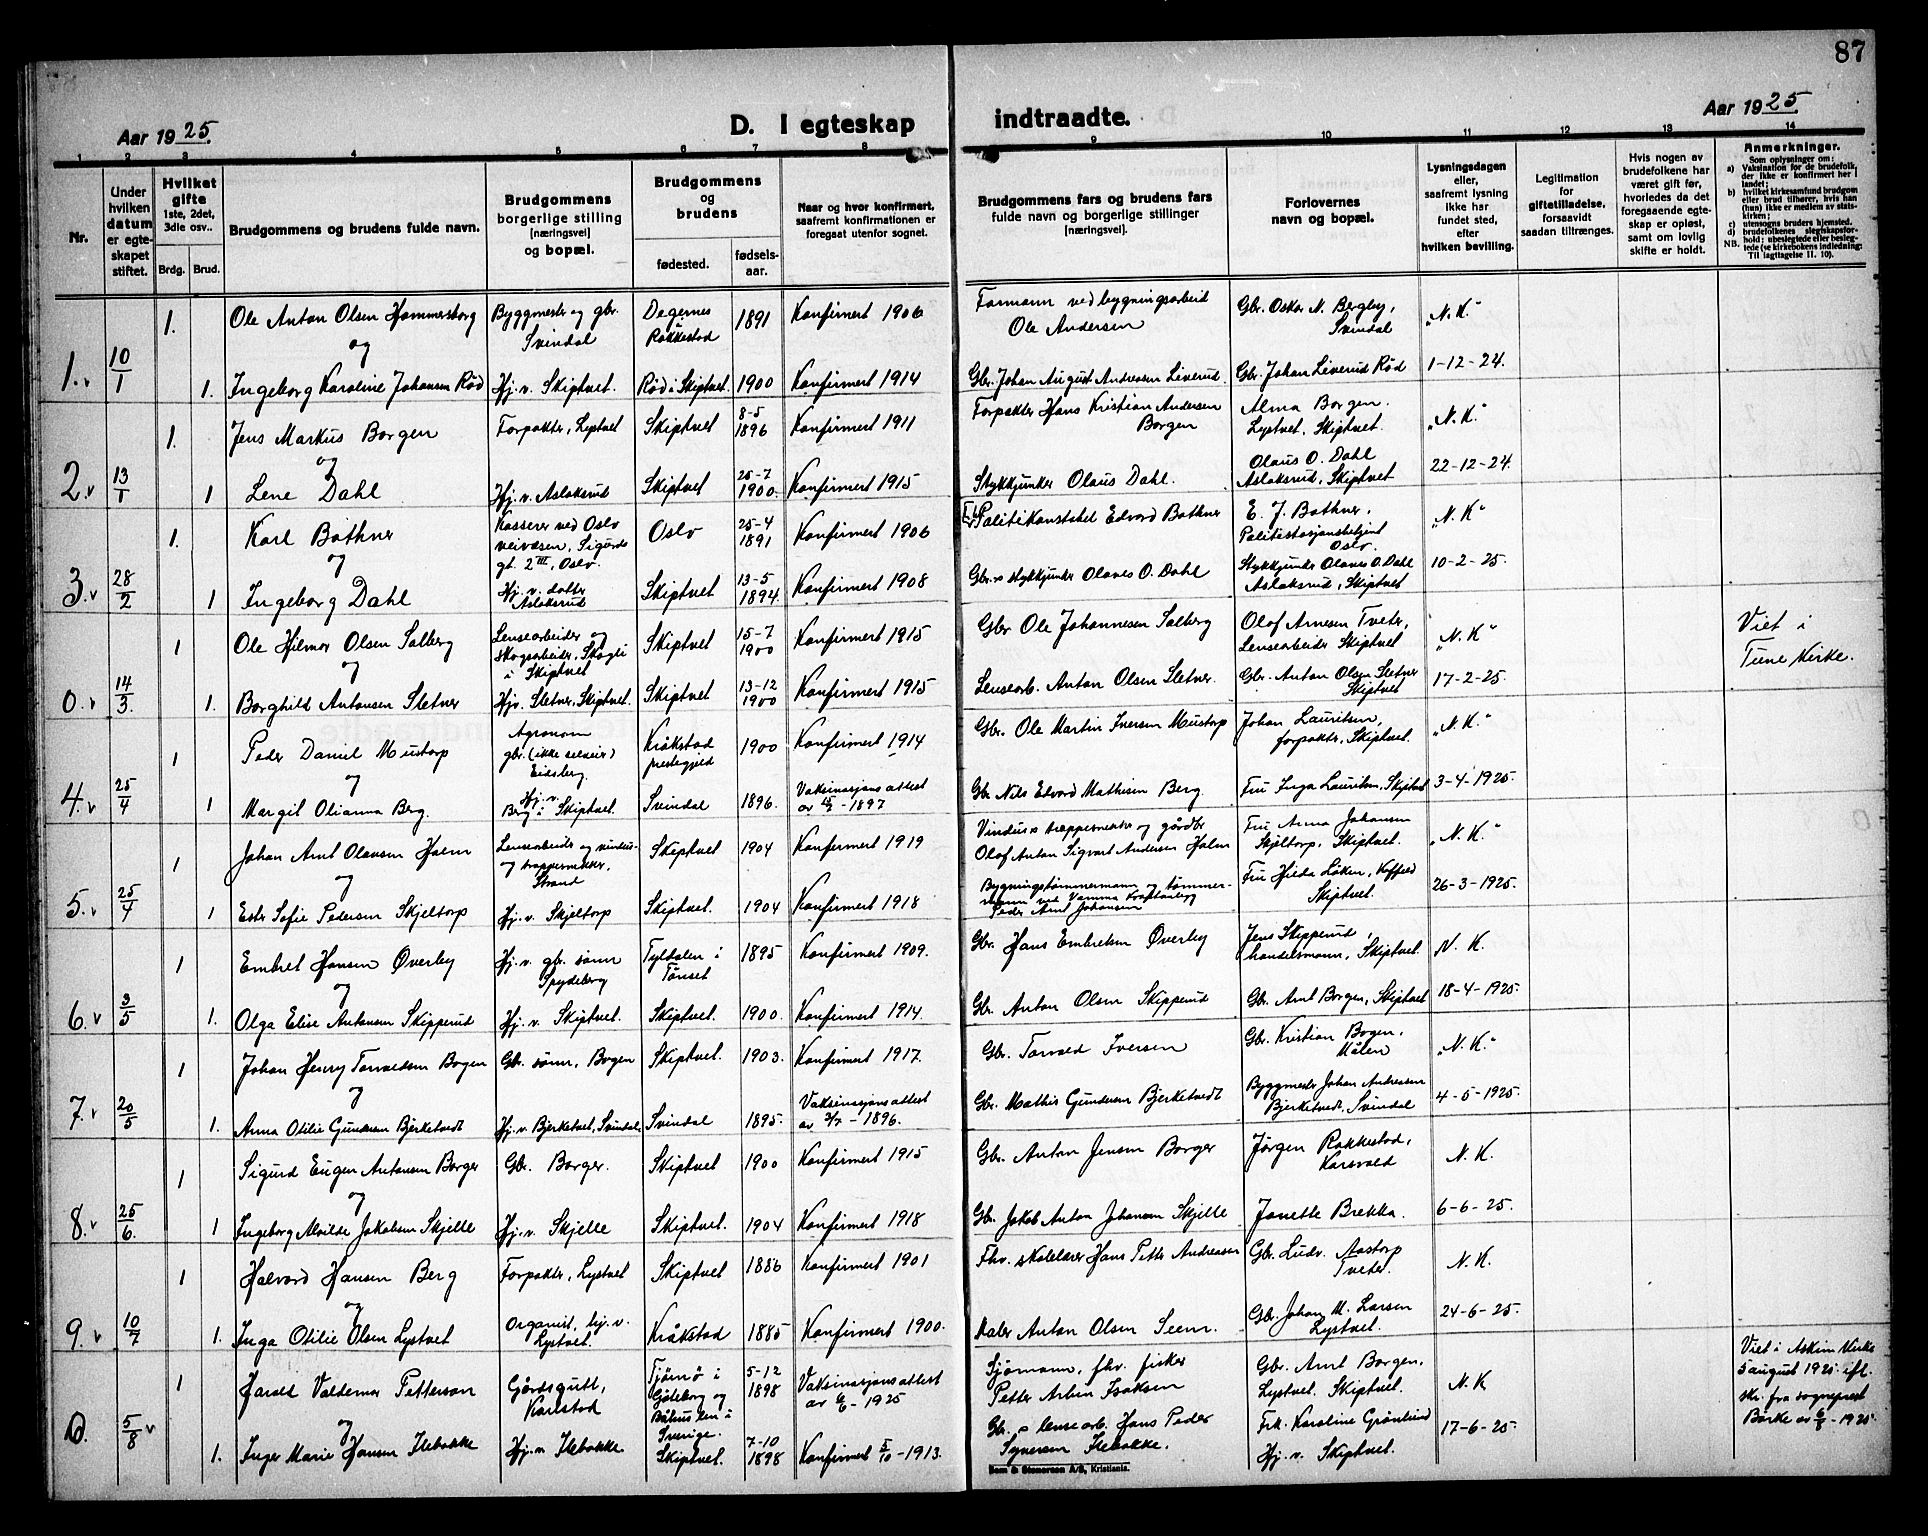 87
Aar 1925.
D. I egteskap indtraadte.
Aar 1925.
1 2 3 4 5 6 7 8 9 10 11 12 13 14
Nr.
Under hvilken datum er egteskapet stiftet.
Hvilket gifte 1ste, 2det, 3die osv..
Brdg. Brud.
Brudgommens og brudens fulde navn.
Brudgommens borgerlige stilling [næringsvei] og bopæl.
Brudgommens og brudens
fødested. fødselsaar.
Naar og hvor konfirmert, saafremt konfirmationen er foregaat utenfor sognet.
Brudgommens fars og brudens fars fulde navn og borgerlige stillinger [næringsvei].
Forlovernes navn og bopæl.
Lysningsdagen eller, saafremt lysning ikke har fundet sted, efter hvilken bevilling.
Legitimation for giftetilladelse, forsaavidt saadan tiltrænges.
Hvis nogen av brudefolkene har været gift før, hvorledes da det foregaaende egteskap er opløst, samt om lovlig skifte er holdt.
Anmerkninger.
Som oplysninger om:
a) Vaksination for de brudefolk, der ikke er konfirmert her i landet;
b) hvilket kirkesamfund brudgom eller brud tilhører, hvis han (hun) ikke er medlem av statskirken;
c) utensogns bruders hjemsted.
d) brudefolkenes slegtskapsforhold: ubeslegtede eller beslegtede (se kirkebokens indledning:
NB. Til iagttagelse II. 10).
1. Ole Anton Olsen Hammersborg Byggmester og gbr. Svindal Degernes Rakkestad 1891 Konfirmert 1906 Formann ved bygningsarbeid Ole Andersen Gbr. Oskar N. Bergby, Svindal "N.K."
og
1. v 10/1 1. Ingeborg Karoline Johansen Rød Hj. v. Skiptvet. Rød i Skiptvet. 1900 Konfirmert 1914 Gbr. Johan August Andreasen Liverud Gbr. Johan Liverud Rød 1-12-24.
1. Jens Markus Borgen Forpakter, Lystvet Skiptvet 8-5 1896 Konfirmert 1911 Forpakter Hans Kristian Andersen Borgen Alma Borgen. Lystvet, Skiptvet. "N.K."
og
2. v 13/1 1 Lene Dahl Hj. v. Aslaksrud Skiptvet 25-7 1900. Konfirmert 1915 Stykkjunker Olaus Dahl. Olaus O. Dahl Aslaksrud, Skiptvet 22-12-24.
1. Karl Bothner Kasserer ved Oslo veivæsen, Sigurds gt. 2 III, Oslo. Oslo 25-4 1891 Konfirmert 1906 Politikonstabel Edvard Bothner E. J. Bothner, Politistasjonsbetjent Oslo. "N.K"
og
3. v 28/2 1 Ingeborg Dahl Hj. v. datter Aslaksrud Skiptvet 13-5 1894. Konfirmert 1908 Gbr. & stykkjunker Olaves O. Dahl Stykkjunker Olaves O. Dahl Aslaksrud, Skiptvet 10-2-25.
1 Ole Hilmar Olsen Solberg Lensearbeider og skogsarbeider, Skogli i Skiptvet Skiptvet 15-7 1900 Konfirmert 1915 Gbr Ole Johannesen Solberg Olof Arnesen Tveter, Lensearbeider Skiptvet "N.K" Viet i Tune Kirke.
og
0. v 14/3. 1. Borghild Antonsen Sletner Hjv. Sletner, Skiptvet. Skiptvet 13-12 1900 Konfirmert 1915 Lensearb. Anton Olsen Sletner. Gbr. Anton Olsen Sletner Skiptvet 17-2-25.
1 Peder Daniel Mustorp Agronom gbr. (ikke selveier) Eidsberg. Kråkstad prestegjeld 1900 Konfirmert 1914 Gbr. Ole Martin Iversen Mustorp Johan Lauritsen, forpakter, Skiptvet. "N.K."
og
4. v 25/4 1 Margit Olianna Berg. Hj. v. Berg i Skiptvet. Svindal 1896. Vaksinasjonsattest av - 1897 Gbr Nils Edvard Mathisen Berg. Fru Inga Lauritsen, Skiptvet 3-4-1925.
1 Johan Arnt Olavsen Holm Lensearbeider og vindus- og trappesnekker. Strand Skiptvet 1904 Konfirmert 1919 Vindus & trappesnekker og gårdbr Olof Anton Sigvart Andersen Holm Fru Anna Johansen Skjeltorp, Skiptvet. "N.K."
og
5. v 25/4 1 Ester Sofie Pedersen Skjeltorp Hj. v. Skjeltorp Skiptvet. 1904 Konfirmert 1918 Bygningstømmermann og tømmermann ved Vamma Kraftanlegg Peder Arnt Johansen Fru Hilda Løken, Skiptvet. 26-3-1925.
1 Embret Hansen Øverby Hj. v. gbr. sønn Spydeberg Tyldalen i Tønset 1895 Konfirmert 1909. Gbr. Hans Embretsen Øverby Jens Skipperud, handelsmann, Skiptvet. N.K.
og
6. v 3/5 1. Olga Elise Antonsen Skipperud Hj. v. Skiptvet. Skiptvet. 1900. Konfirmert 1914. Gbr. Anton Olsen Skipperud Gbr. Arnt Borgen, Skiptvet 18-4-1925.
1 Johan Henry Torvaldsen Bogen Gbr. sønn, Bogen Skiptvet. 1903. Konfirmert 1917. Gbr. Torvald Iversen Gbr. Kristian Bogen. Målen "N.K."
og
7. v 20/5 1. Anna Otilie Gundersen Bjerketvedt Hj. v. Bjerketvet, Svindal. Svindal 1895. Vaksinasjonsattest av - 1896. Gbr. Mathis Gundersen Bjerketvedt Byggmester Johan Andreassen Bjerketvedt, Svindal 4-5-1925.
1 Sigurd Eugen Antonsen Borger Gbr. Borger. Skiptvet 1900 Konfirmert 1915 Gbr. Anton Jensen Borger Jørgen Rakkestad, Karsvald N.K.
og
8. v 25/6. 1 Ingeborg Alvilde Jakobsen Skjelle Hj. v. Skjelle Skiptvet. 1904 Konfirmert 1918 Gbr. Jakob Anton Johansen Skjelle Janette Brekka. 6-6-25.
1 Halvard Hansen Berg Forpakter, Lystvet Skiptvet 1886 Konfirmert 1901 Fhv. skolelærer Hans Petter Andreasen Gbr. Ludv. Aastorp Tveter. N.K.
og
9. v 10/7 1. Inga Otilie Olsen Lystvet Organist, hj. v. Lystvet. Kråkstad 1885 Konfirmert 1900. Maler Anton Olsen Seem. Gbr. Johan M. Larsen Lystvet. 24-6-25.
1 Harald Valdemar Petterson Gårdsgutt, Karlstad Tjörnö i Göteborg og Båhus len i Sverige. 5-12 1898 Vaksinasjonsattest av - 1925 Sjømann, fhv. fisker Petter Arbin Isaksen Gbr. Arnt Borgen, Lystvet, Skiptvet. N.K Viet i Askim Kirke 5 august 1925. ifl. skr. fra sogneprest Borke av - 1925.
og
0. 5/8 v 1. Inger Marie Hansen Ilebakke Hj. v. Ilebakke Skiptvet. 7-10 1898 Konfirmert 5/10-1913. Gbr. & lensearb. Hans Peder Synersen Ilebakke. Frk. Karoline Grønlund Hj. v. Skiptvet. 17-6-25.
Sem & Stenersen A/S, Kristiania.